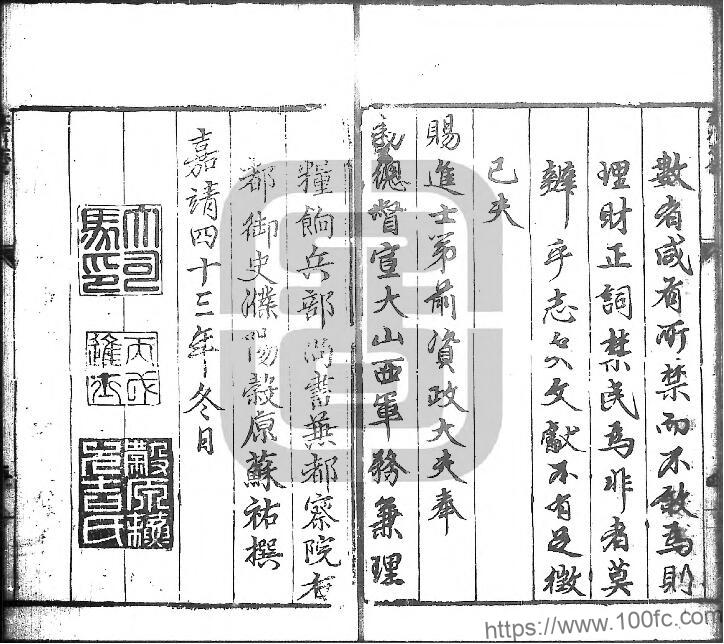 數者咸有所禁而不敢為則
理財正詞禁民為非者莫
辨乎志公文獻不有足徵
已夫
賜進士第前資政大夫奉
敕總督宣大山西軍務兼理
糧餉兵部尚書兼都察院右
都御史濮陽穀原蘇祐撰
嘉靖四十三年冬月
大司馬印
丙戌進士
穀原
https://www.100fc.com